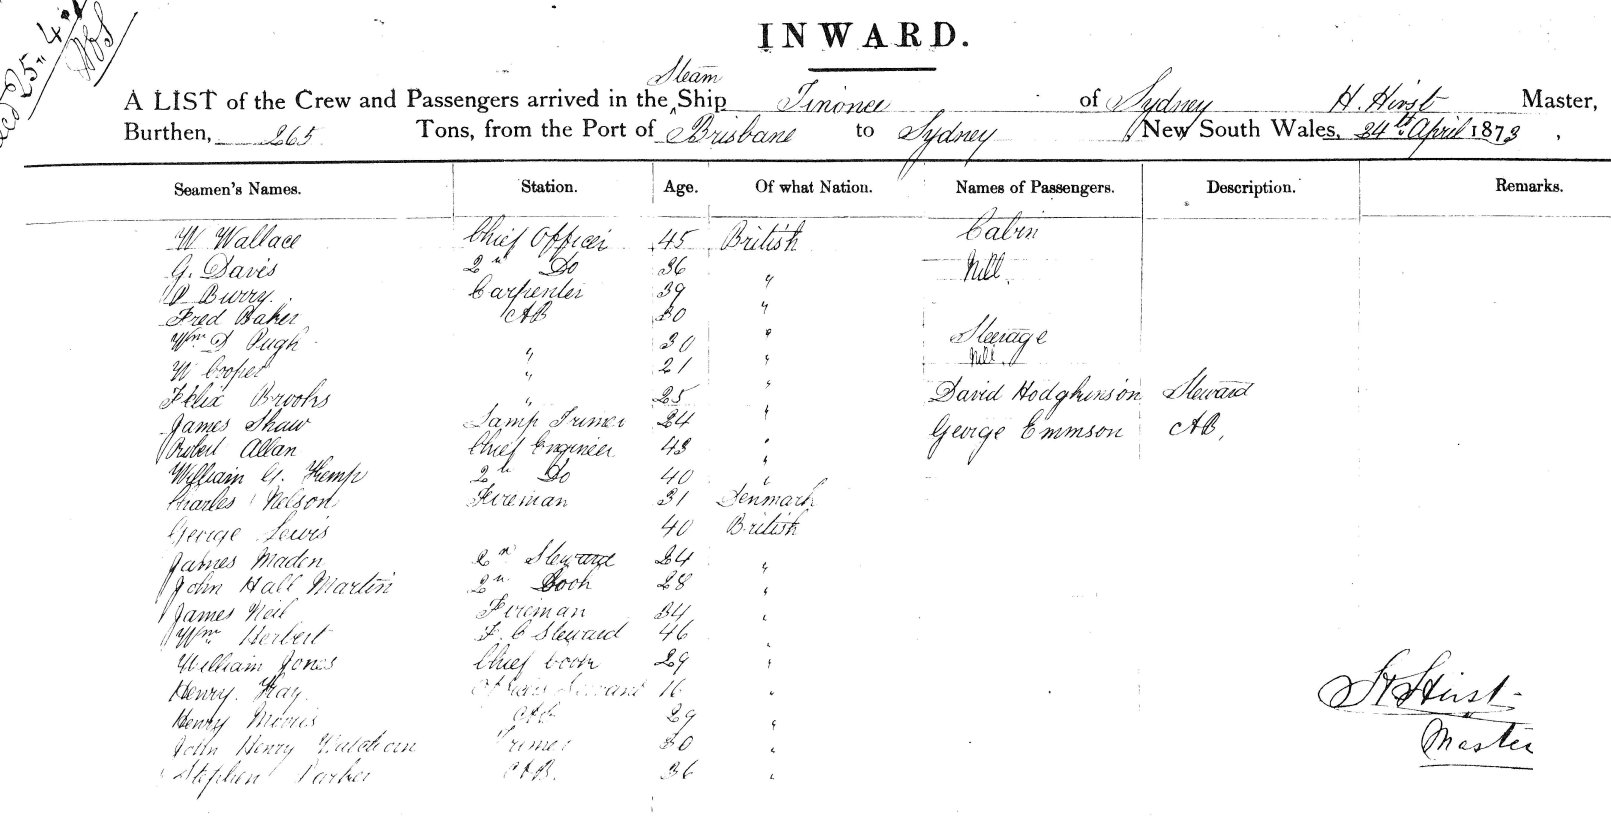 25" 4
INWARD.
Steam
A LIST of the Crew and Passengers arrived in the Ship Tinonee of Sydney H. Hirst Master,
Burthen, 265 Tons, from the Port of Brisbane to Sydney New South Wales, 24th April 1873,
Seamen's Names. Station. Age. Of what Nation. Names of Passengers. Description. Remarks.
W Wallace Chief Officer 45 British Cabin
G. Davis 2n Do 36 " Nill.
P Burry. Carpenter 39 "
Fred Baker AB 30 "
Wm D Pugh " 30 " Steerage
W Cooper " 21 " Nill.
Felix Brooks " 25 " David Hodgkinson Steward
James Shaw Lamp Trimer 24 " George Emmson AB,
Robert Allan Chief Engineer 43 "
William G. Kemp 2n Do 40 "
Charles Nelson Fireman 31 Denmark
George Lewis 40 British
James Maden 2n Steward 24 "
John Hall Martin 2n Cook 28 "
James Neil Fireman 34 "
Wm Herbert F. C Steward 46 "
William Jones Chief Cook 29 "
Henry Servant 16 "
Henry AB 29 "
John Henry Trimer 30 "
Stephen Parker AB. 36 "
H Hirst
Master